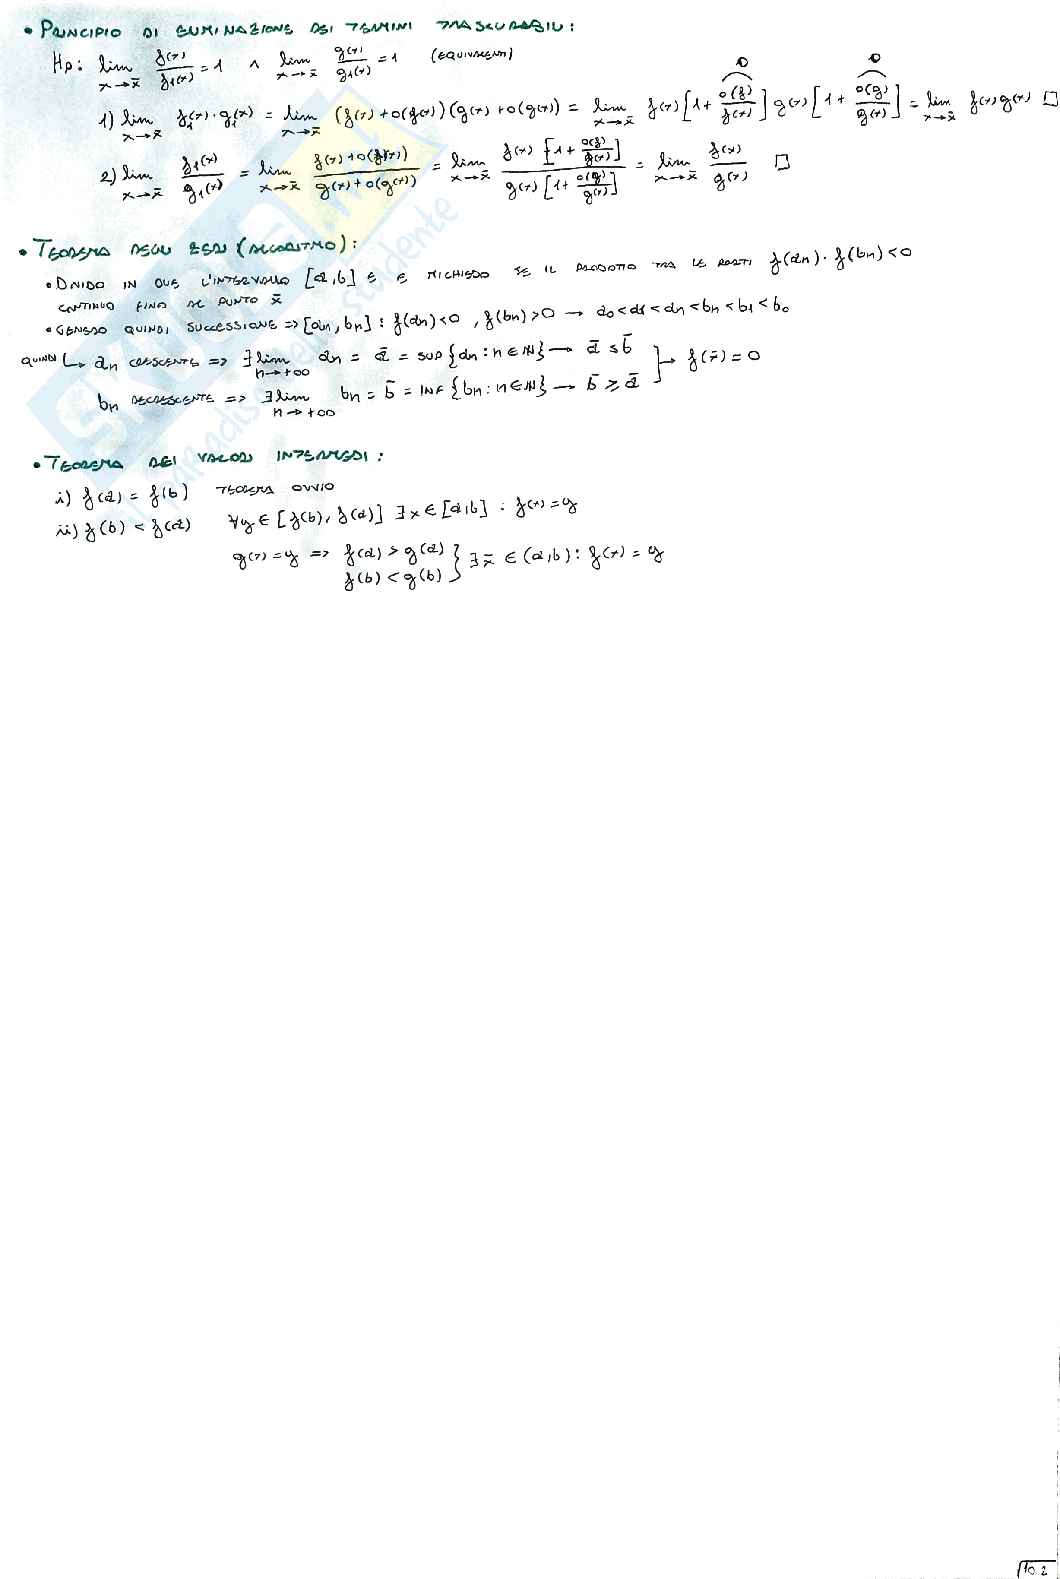 • PRINCIPIO DI ELIMINAZIONE DEI TERMINI TRASCURABILI:
Hp: lim x→x̄ f(x)/f₁(x) = 1 ∧ lim x→x̄ g(x)/g₁(x) = 1 (EQUIVALENTI)
1) lim x→x̄ f₁(x)·g₁(x) = lim x→x̄ (f(x)+o(f(x)))(g(x)+o(g(x))) = lim x→x̄ f(x)[1+ o(f)/f(x)] g(x)[1+ o(g)/g(x)] = lim x→x̄ f(x)g(x) □
2) lim x→x̄ f₁(x)/g₁(x) = lim x→x̄ f(x)+o(f(x))/g(x)+o(g(x)) = lim x→x̄ f(x)[1+ o(f)/f(x)]/g(x)[1+ o(g)/g(x)] = lim x→x̄ f(x)/g(x) □
• TEOREMA DEGLI ZERI (ALGORITMO):
• DIVIDO IN DUE L'INTERVALLO [a,b] E E RICHIEDO SE IL PRODOTTO TRA LE PARTI f(an)·f(bn)<0
CONTINUO FINO AL PUNTO x̄
• GENERO QUINDI SUCCESSIONE => [an,bn] : f(an)<0 , f(bn)>0 → a₀<a₁<an<bn<b₁<b₀
QUINDI ↳ an CRESCENTE => ∃ lim n→+∞ an = ā = SUP{an : n∈ℕ} → ā ≤ b̄ → f(x̄) = 0
bn DECRESCENTE => ∃ lim n→+∞ bn = b̄ = INF{bn : n∈ℕ} → b̄ ≥ ā
• TEOREMA DEI VALORI INTERMEDI:
i) f(a) = f(b) TEOREMA OVVIO
ii) f(b) < f(a) ∀y ∈ [f(b), f(a)] ∃x ∈ [a,b] : f(x) = y
g(x) = y => f(a) > g(a) } ∃x̄ ∈ (a,b) : f(x) = y
f(b) < g(b)
10.2